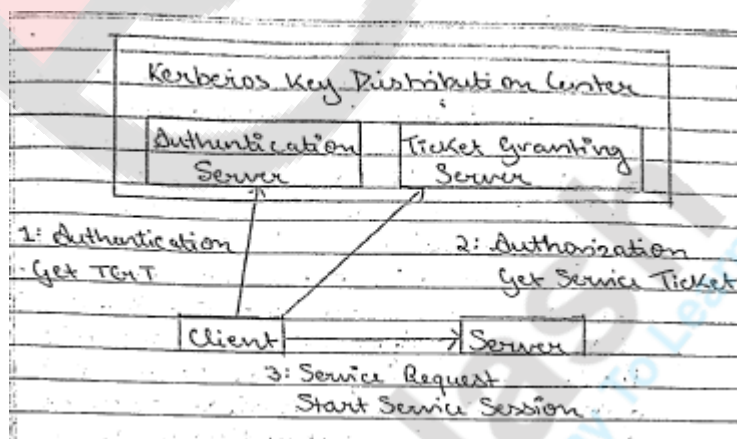 Kerberos Key Distribution Center
Authentication
Server
Ticket Granting
Server
1: Authentication
Get TGT
2: Authorization
Get Service Ticket
Client
Server
3: Service Request
Start Service Session